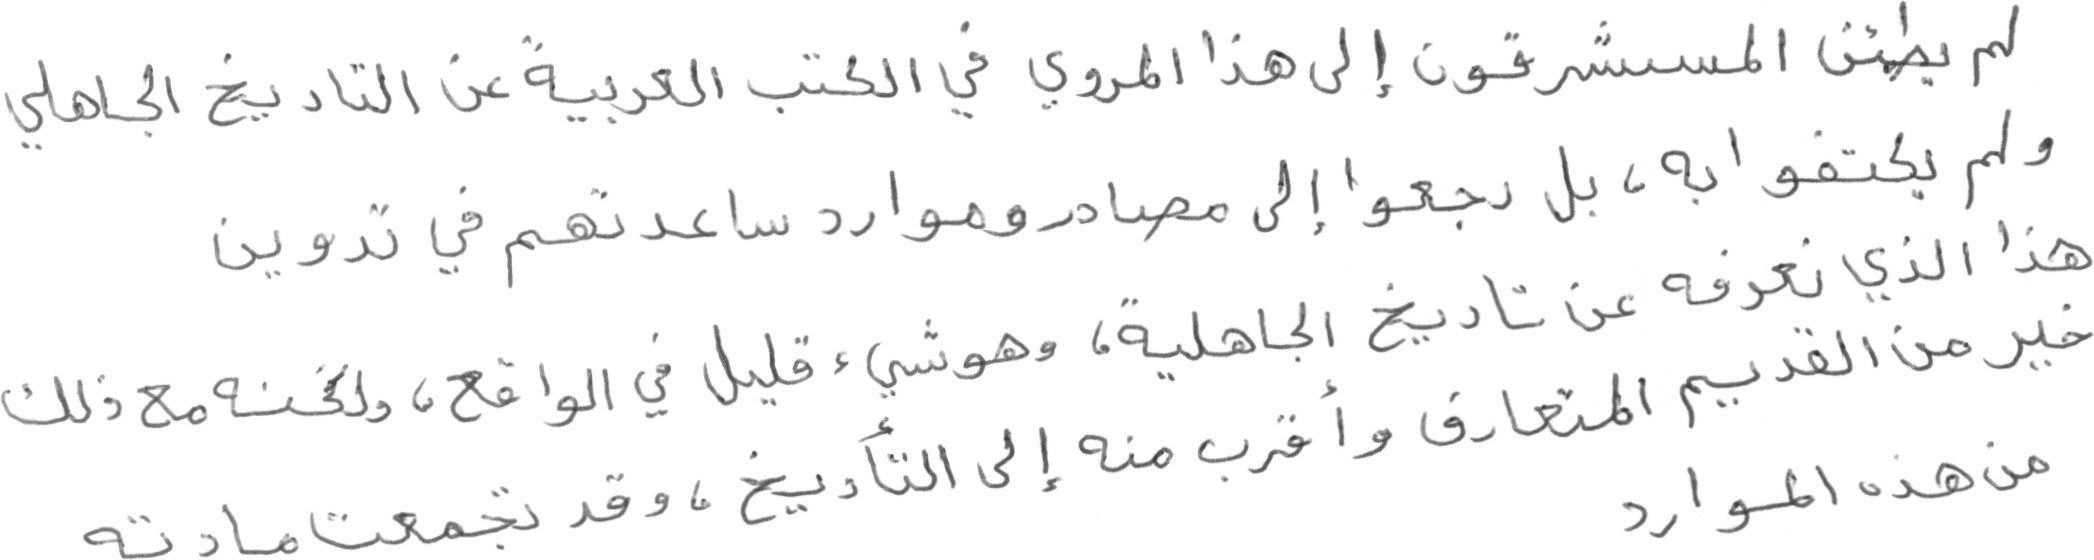 لم يطمئن المستشرقون إلى هذا المروي في الكتب العربية عن التاريخ الجاهلي
ولم يكتفوا به، بل رجعوا إلى مصادر وموارد ساعدتهم في تدوين
هذا الذي نعرفه عن تاريخ الجاهلية، وهو شيء قليل في الواقع، ولكنه مع ذلك
خير من القديم المتعارف وأقرب منه إلى التأريخ، وقد تجمعت مادته
من هذه الموارد